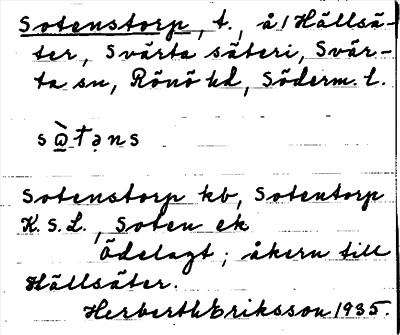 Sotenstorp, t., å/Hällsä-
ter, Svärta säteri, Svär-
ta sn, Rönö hd, Söderm. l.
sὼ̱tə̣ns
Sotenstorp kb, Sotentorp
K.S.L., Soten ek
Ödelagt; åkern till
Hällsäter.
Herberth Eriksson 1935.